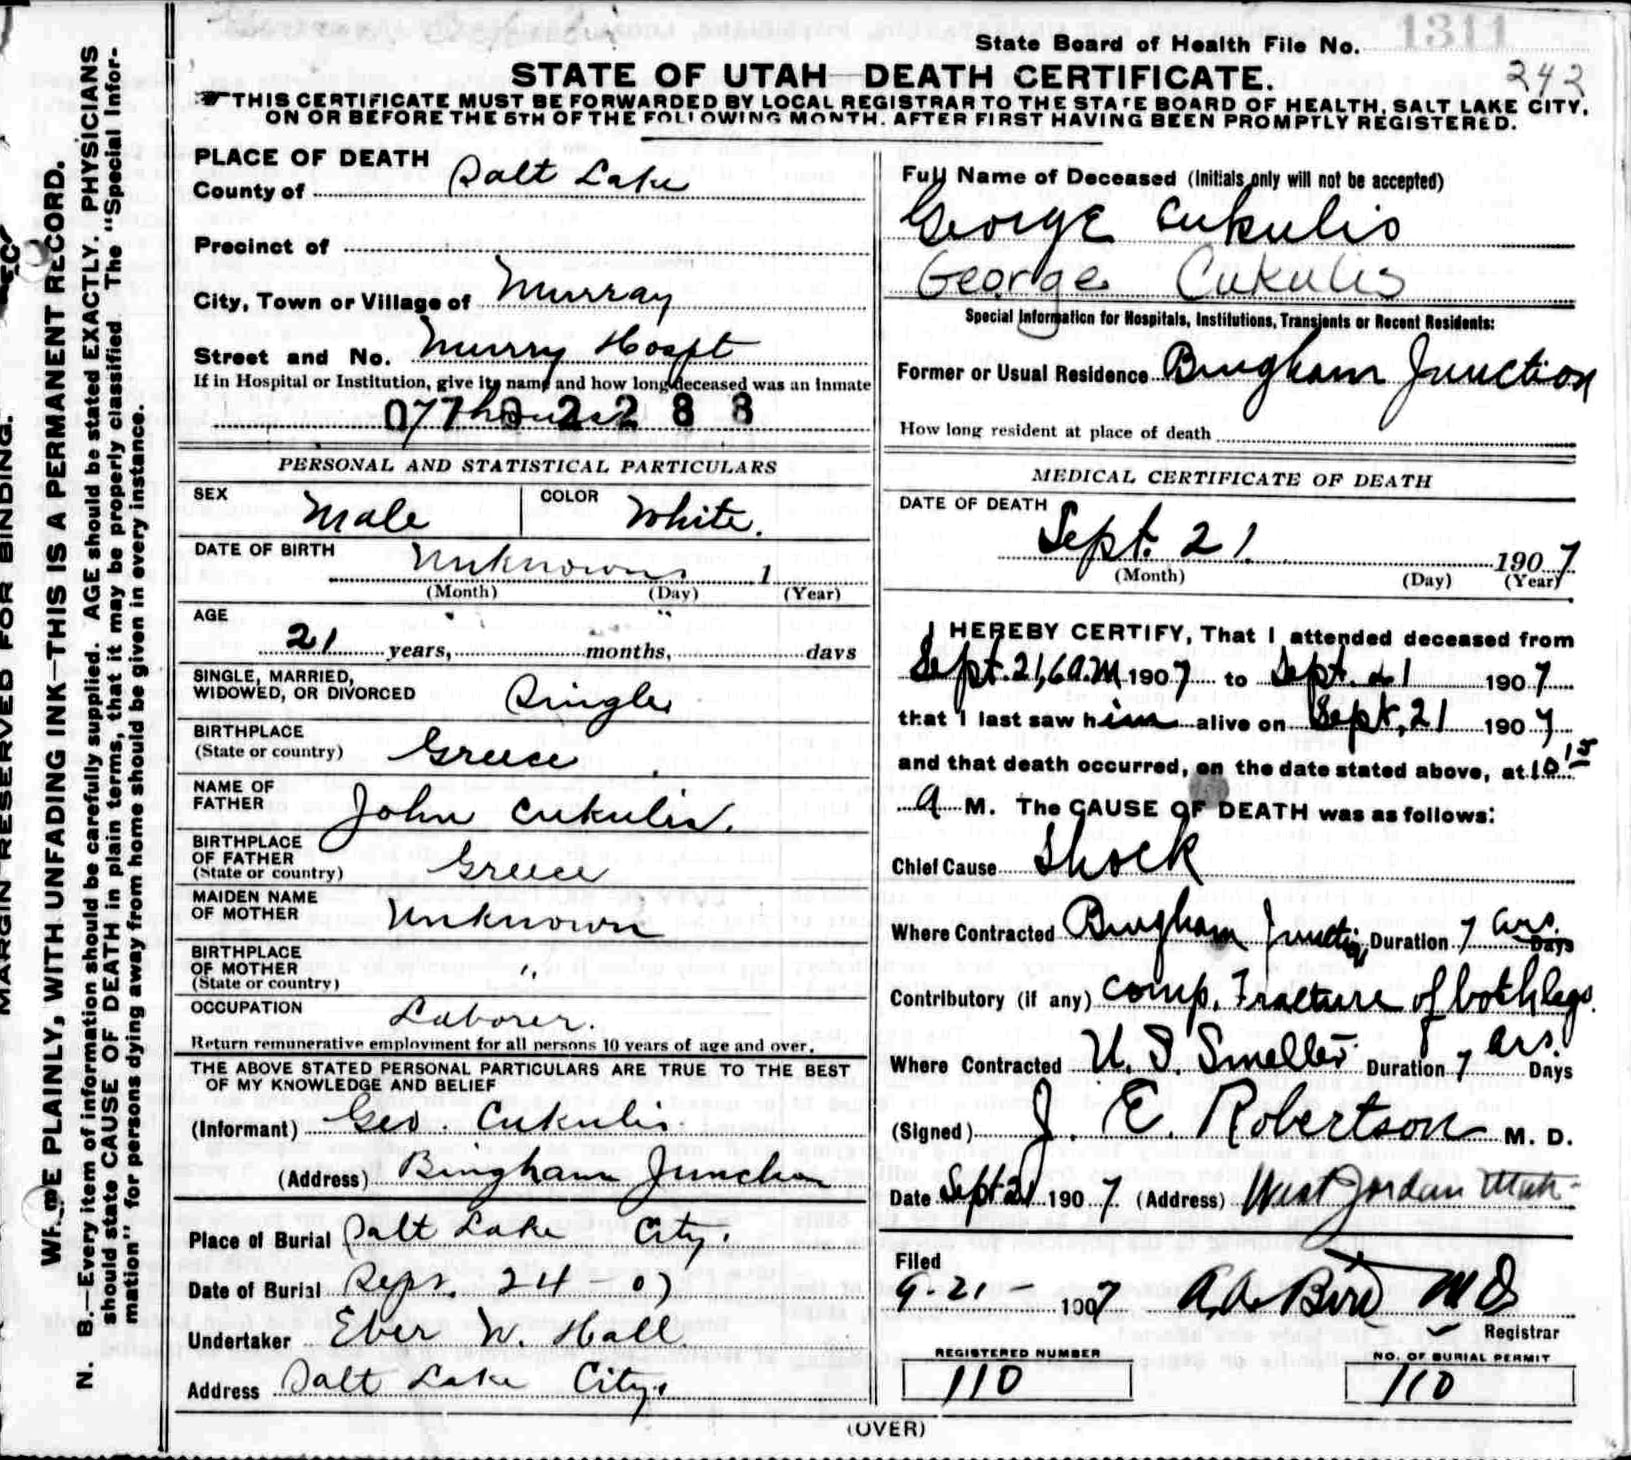 1311
State Board of Health File No.
242
STATE OF UTAH—DEATH CERTIFICATE.
THIS CERTIFICATE MUST BE FORWARDED BY LOCAL REGISTRAR TO THE STATE BOARD OF HEALTH, SALT LAKE CITY,
ON OR BEFORE THE 5TH OF THE FOLLOWING MONTH, AFTER FIRST HAVING BEEN PROMPTLY REGISTERED.
MARGIN RESERVED FOR BINDING.
WRITE PLAINLY, WITH UNFADING INK—THIS IS A PERMANENT RECORD.
N. B.—Every item of information should be carefully supplied. AGE should be stated EXACTLY. PHYSICIANS
should state CAUSE OF DEATH in plain terms, that it may be properly classified. The "Special Infor-
mation" for persons dying away from home should be given in every instance.
PLACE OF DEATH
County of Salt Lake
Precinct of
City, Town or Village of Murray
Street and No. Murry Hospt
If in Hospital or Institution, give its name and how long deceased was an Inmate
7 hours
07702288
PERSONAL AND STATISTICAL PARTICULARS
SEX Male COLOR White.
DATE OF BIRTH Unknown 1
(Month) (Day) (Year)
AGE
21 years, months, days
SINGLE, MARRIED,
WIDOWED, OR DIVORCED Single
BIRTHPLACE
(State or country) Greece
NAME OF
FATHER John Cukulis.
BIRTHPLACE
OF FATHER
(State or country) Greece
MAIDEN NAME
OF MOTHER Unknown
BIRTHPLACE
OF MOTHER "
(State or country)
OCCUPATION Laborer.
Return remunerative employment for all persons 10 years of age and over.
THE ABOVE STATED PERSONAL PARTICULARS ARE TRUE TO THE BEST
OF MY KNOWLEDGE AND BELIEF
(Informant) Geo. Cukulis
(Address) Bingham Junction
Place of Burial Salt Lake City.
Date of Burial Sept. 24-07
Undertaker Eber W. Hall
Address Salt Lake City.
Full Name of Deceased (Initials only will not be accepted)
George Cukulis
George Cukulis
Special Information for Hospitals, Institutions, Transients or Recent Residents:
Former or Usual Residence Bingham Junction
How long resident at place of death
MEDICAL CERTIFICATE OF DEATH
DATE OF DEATH
Sept. 21 1907
(Month) (Day) (Year)
I HEREBY CERTIFY, That I attended deceased from
Sept. 21, 6 a.m 1907 to Sept. 21 1907
that I last saw him alive on Sept, 21 1907
and that death occurred, on the date stated above, at 10 15
a M. The CAUSE OF DEATH was as follows:
Chief Cause Shock
Where Contracted Bingham Junction Duration 7 hrs. Days
Contributory (if any) Comp. Fracture of both legs.
Where Contracted U. S. Smelter Duration 7 hrs. Days
(Signed) J. E. Robertson M. D.
Date Sept 21 1907 (Address) West Jordan Utah
Filed
9-21- 1907 A. A. Bird M D
Registrar
REGISTERED NUMBER
110
NO. OF BURIAL PERMIT
110
(OVER)